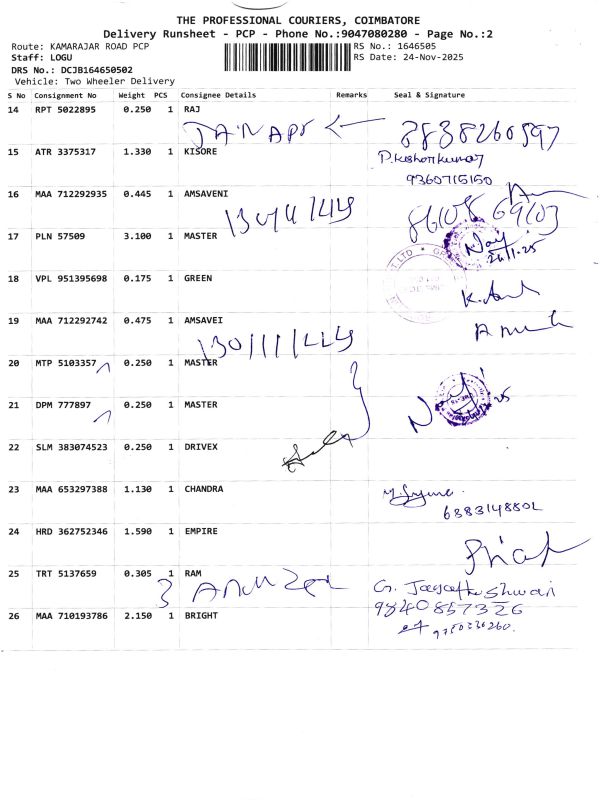 THE PROFESSIONAL COURIERS, COIMBATORE
Delivery Runsheet - PCP - Phone No.:9047080280 - Page No.:2
Route: KAMARAJAR ROAD PCP
RS No.: 1646505
Staff: LOGU
RS Date: 24-Nov-2025
DRS No.: DCJB164650502
Vehicle: Two Wheeler Delivery
S No Consignment No Weight PCS Consignee Details Remarks Seal & Signature
14 RPT 5022895 0.250 1 RAJ
8838260597
15 ATR 3375317 1.330 1 KISORE
P.Kishorkumar
9360715150
16 MAA 712292935 0.445 1 AMSAVENI
17 PLN 57509 3.100 1 MASTER
18 VPL 951395698 0.175 1 GREEN
19 MAA 712292742 0.475 1 AMSAVEI
20 MTP 5103357 0.250 1 MASTER
21 DPM 777897 0.250 1 MASTER
22 SLM 383074523 0.250 1 DRIVEX
23 MAA 653297388 1.130 1 CHANDRA
24 HRD 362752346 1.590 1 EMPIRE
25 TRT 5137659 0.305 1 RAM
9840857326
26 MAA 710193786 2.150 1 BRIGHT